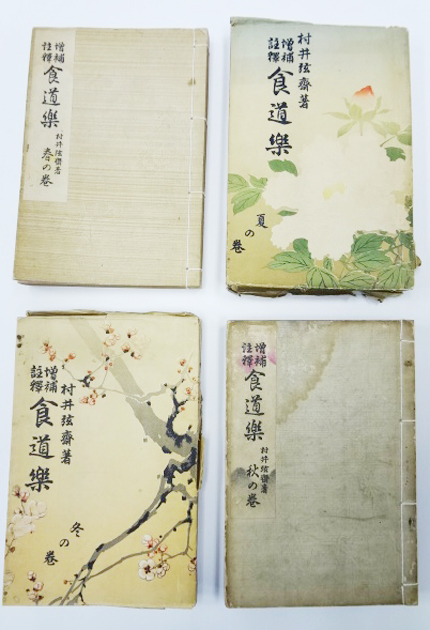 增補
註釋
食道樂
村井弦齋著
春の巻
村井弦齋著
增補
註釋
食道樂
夏の巻
村井弦齋著
增補
註釋
食道樂
冬の巻
增補
註釋
食道樂
村井弦齋著
秋の巻